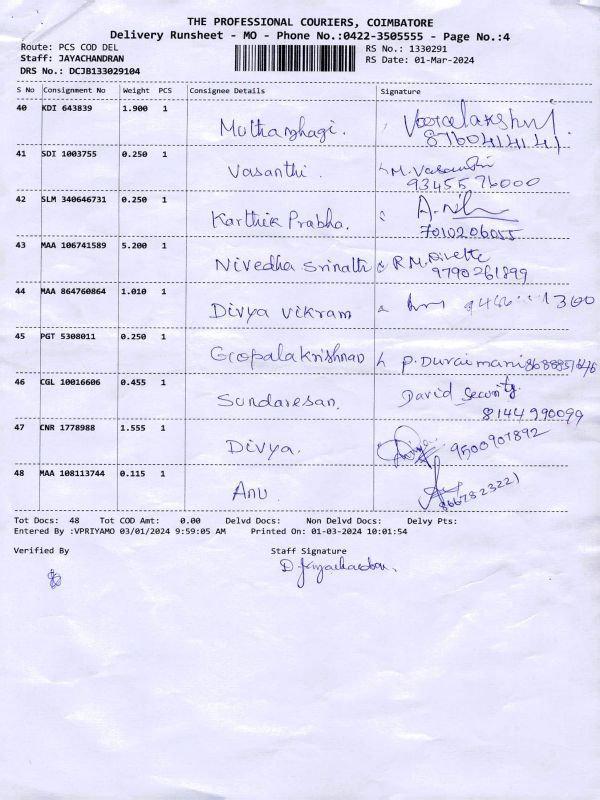 THE PROFESSIONAL COURIERS, COIMBATORE
Delivery Runsheet - MO - Phone No.:0422-3505555 - Page No.:4
Route: PCS COD DEL RS No.: 1330291
Staff: JAYACHANDRAN RS Date: 01-Mar-2024
DRS No.: DCJB133029104
S No Consignment No Weight PCS Consignee Details Signature
40 KDI 643839 1.900 1 Muthazhagi.
8760414141
41 SDI 1003755 0.250 1 Vasanthi. M. Vasanthi
9345576000
42 SLM 340646731 0.250 1 Karthik Prabha.
7010206055
43 MAA 106741589 5.200 1 Nivedha Srinath R M.
9790261899
44 MAA 864760864 1.010 1 Divya Vikram
45 PGT 5308011 0.250 1 Gopalakrishnan P. Duraimani
46 CGL 10016606 0.455 1 Sundaresan. David Security.
8144990099
47 CNR 1778988 1.555 1 Divya. 9500907892
48 MAA 108113744 0.115 1 Anu.
Tot Docs: 48 Tot COD Amt: 0.00 Delvd Docs: Non Delvd Docs: Delvy Pts:
Entered By :VPRIYAMO 03/01/2024 9:59:05 AM Printed On: 01-03-2024 10:01:54
Verified By Staff Signature